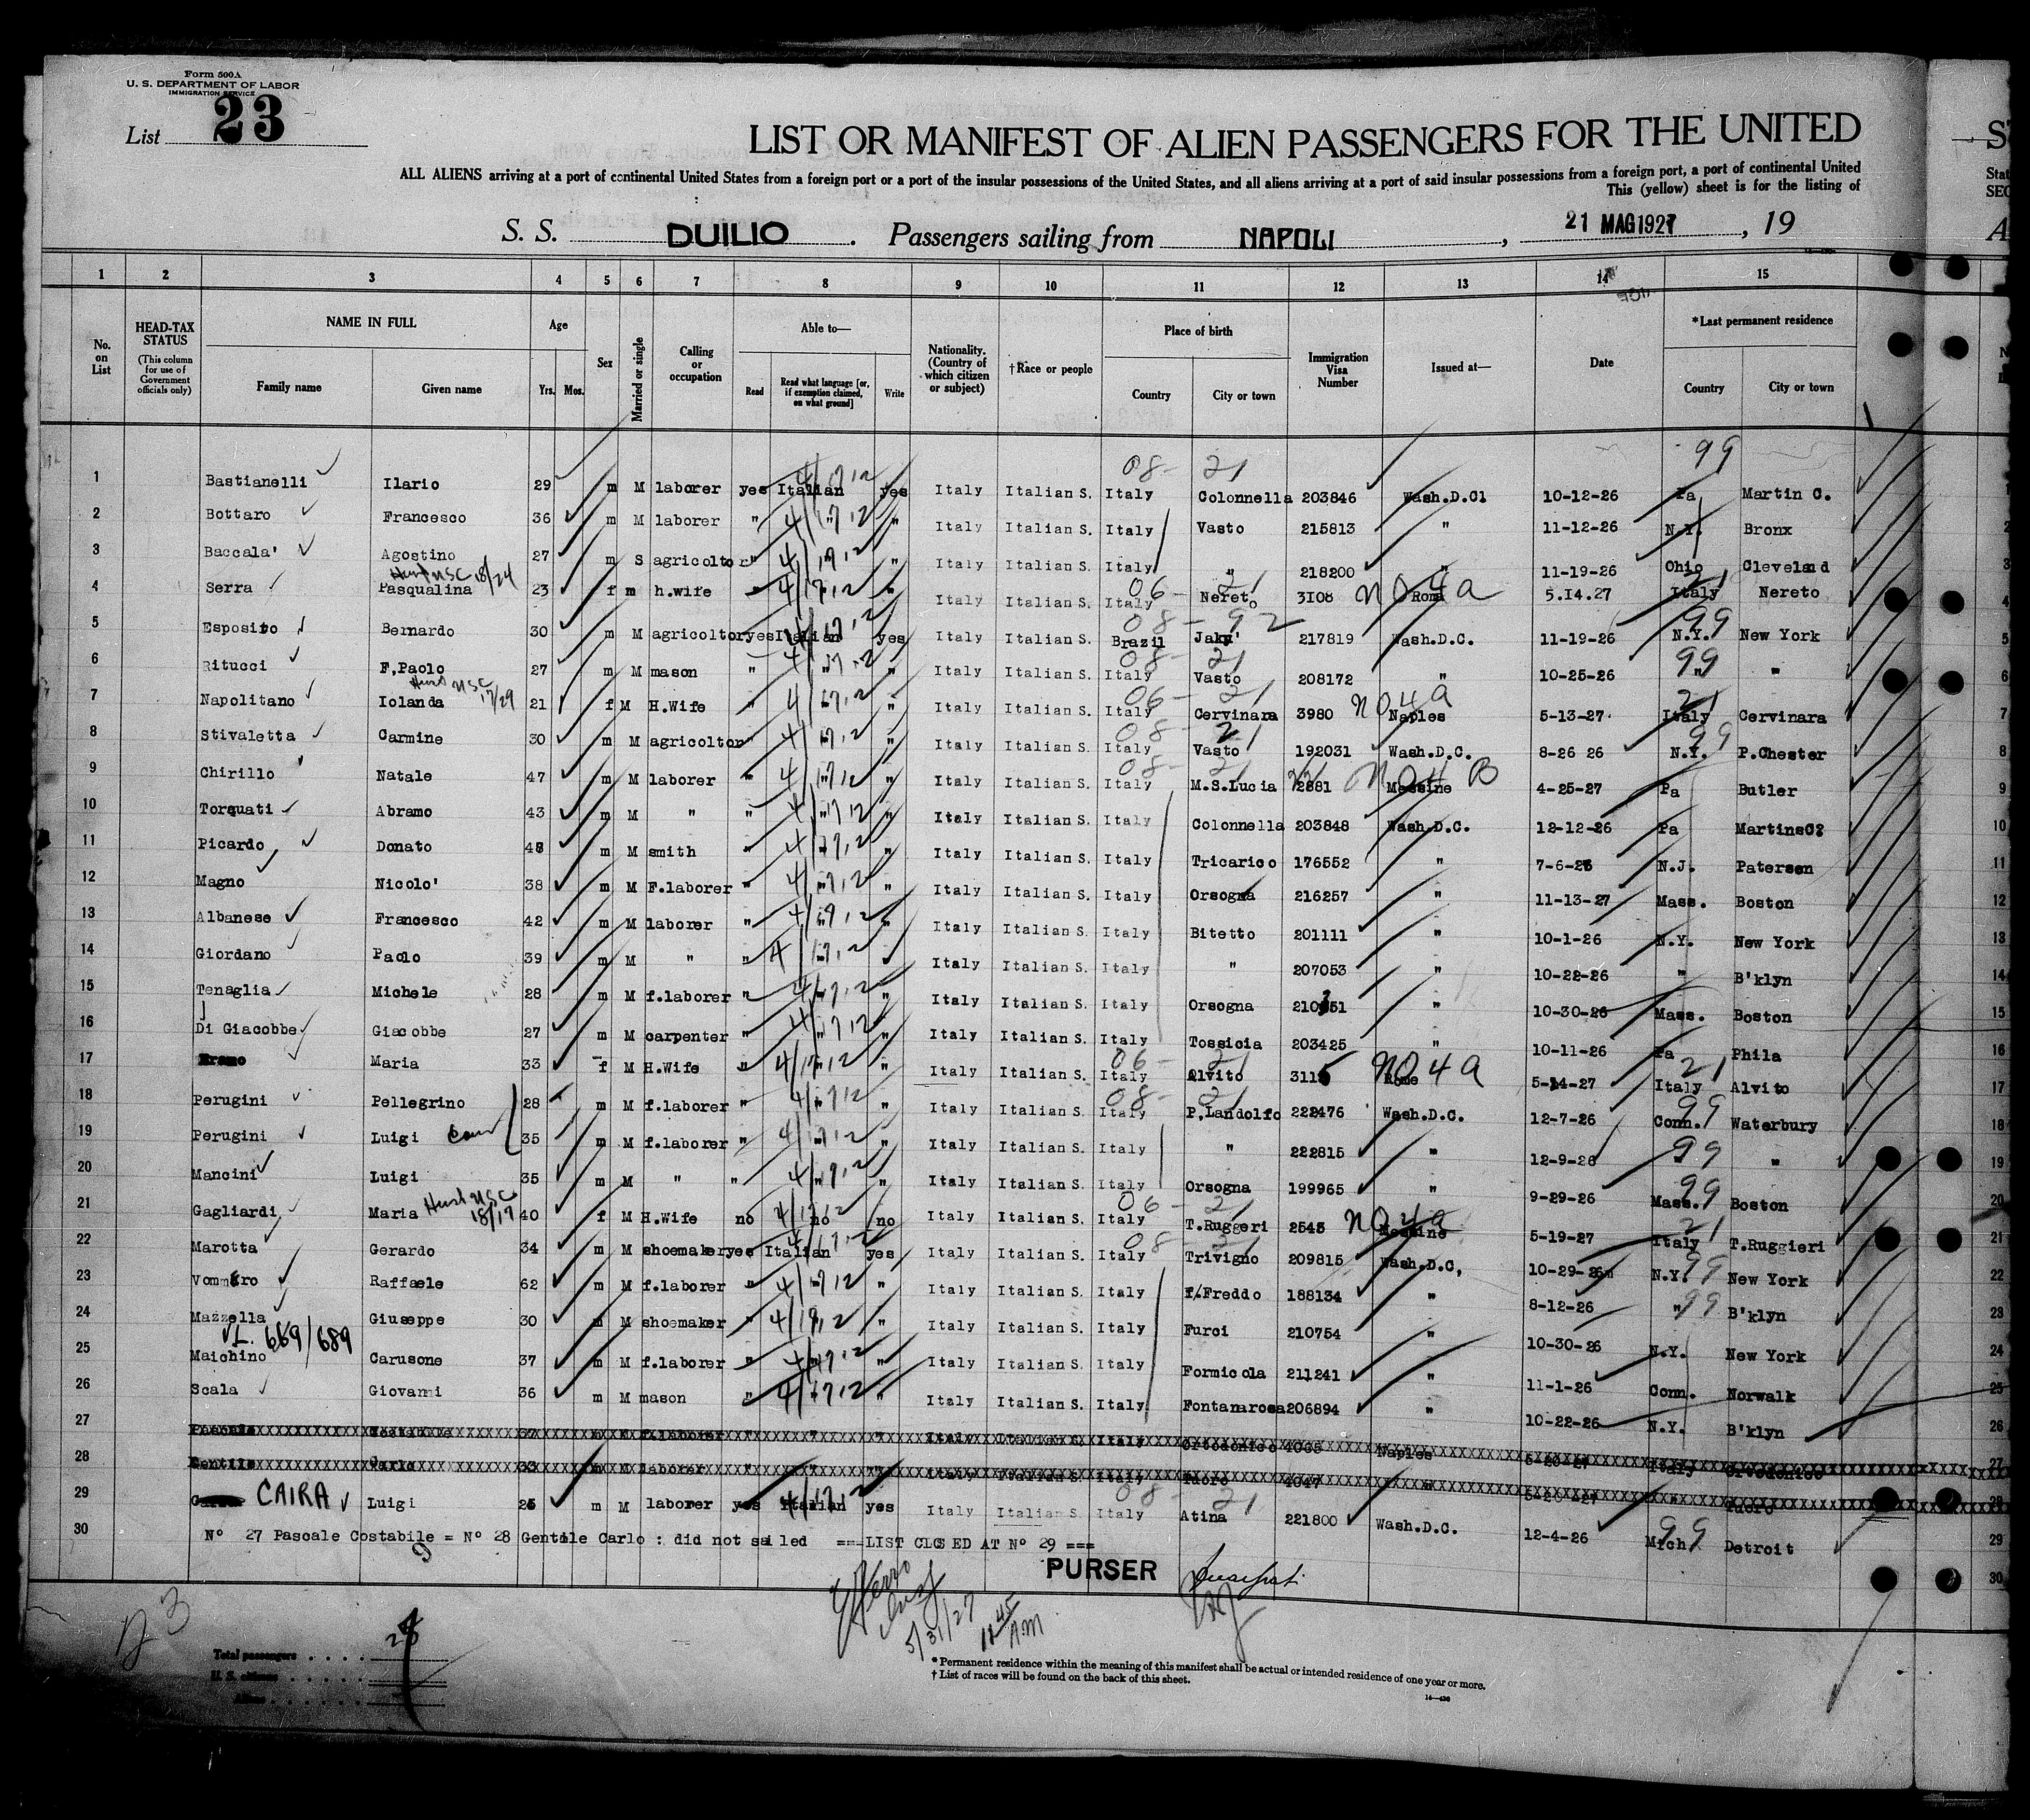 Form 500A
U. S. DEPARTMENT OF LABOR
IMMIGRATION SERVICE
List 23
LIST OR MANIFEST OF ALIEN PASSENGERS FOR THE UNITED
ALL ALIENS arriving at a port of continental United States from a foreign port or a port of the insular possessions of the United States, and all aliens arriving at a port of said insular possessions from a foreign port, a port of continental United
This (yellow) sheet is for the listing of
S. S. DUILIO. Passengers sailing from NAPOLI, 21 MAG 1927, 19
1 2 3 4 5 6 7 8 9 10 11 12 13 14 15
No. on List HEAD-TAX STATUS (This column for use of Government officials only) NAME IN FULL Family name Given name Age Yrs. Mos. Sex Married or single Calling or occupation Able to— Read Read what language [or, if exemption claimed, on what ground] Write Nationality. (Country of which citizen or subject) †Race or people Place of birth Country City or town Immigration Visa Number Issued at— Date *Last permanent residence Country City or town
08- 21 99
1 Bastianelli Ilario 29 m M laborer yes Italian yes Italy Italian S. Italy Colonnella 203846 Wash.D.C1 10-12-26 Pa Martin C.
2 Bottaro Francesco 36 m M laborer " " " Italy Italian S. Italy Vasto 215813 " 11-12-26 N.Y. Bronx
3 Baccala' Agostino 27 m S agricoltor " " " Italy Italian S. Italy " 218200 " 11-19-26 Ohio Cleveland
Husb USC 18/24
4 Serra Pasqualina 23 f m h.wife " " " Italy Italian S. Italy Nereto 3108 NO4a Roma 5.14.27 Italy Nereto
5 Esposito Bernardo 30 m M agricoltor yes Italian yes Italy Italian S. Brazil 217819 Wash.D.C. 11-19-26 N.Y. New York
6 Ritucci F.Paolo 27 m M mason " " " Italy Italian S. Italy Vasto 208172 " 10-25-26 " "
Husb USC 17/29
7 Napolitano Iolanda 21 f M H.Wife " " " Italy Italian S. Italy Cervinara 3980 NO4a Naples 5-13-27 Italy Cervinara
8 Stivaletta Carmine 30 m M agricoltor " " " Italy Italian S. Italy Vasto 192031 Wash.D.C. 8-26 26 N.Y. P.Chester
9 Chirillo Natale 47 m M laborer " " " Italy Italian S. Italy M.S.Lucia 2881 NO4B Messine 4-25-27 Pa Butler
10 Torquati Abramo 43 m M " " " " Italy Italian S. Italy Colonnella 203848 Wash.D.C. 12-12-26 Pa
11 Picardo Donato m M smith " " " Italy Italian S. Italy Tricarico 176552 " N.J. Paterson
12 Magno Nicolo' 38 m M F.laborer " " " Italy Italian S. Italy Orsogna 216257 " 11-13-27 Mass. Boston
13 Albanese Francesco 42 m M laborer " " " Italy Italian S. Italy Bitetto 201111 " 10-1-26 N.Y. New York
14 Giordano Paolo 39 m M " " " Italy Italian S. Italy " 207053 " 10-22-26 " B'klyn
15 Tenaglia Michele 28 m M f.laborer " " " Italy Italian S. Italy Orsogna 210351 " 10-30-26 Mass. Boston
16 Di Giacobbe Giacobbe 27 m M carpenter " " " Italy Italian S. Italy Tossicia 203425 " 10-11-26 Pa Phila
17 Maria 33 f M H.Wife " " " Italy Italian S. Italy Alvito NO4a Rome 5-14-27 Italy Alvito
18 Perugini Pellegrino 28 m M f.laborer " " " Italy Italian S. Italy P.Landolfo 222476 Wash.D.C. 12-7-26 Conn. Waterbury
19 Perugini Luigi 35 m M f.laborer " " " Italy Italian S. Italy " 222815 " 12-9-26 " "
20 Mancini Luigi 35 m M " " " " Italy Italian S. Italy Orsogna 199965 " 9-29-26 Mass. Boston
Husb USC 18/17
21 Gagliardi Maria 40 f M H.Wife no no no Italy Italian S. Italy T.Ruggeri 2545 NO4a Messine 5-19-27 Italy T.Ruggieri
22 Marotta Gerardo 34 m M shoemaker yes Italian yes Italy Italian S. Italy Trivigno 209815 Wash.D.C, 10-29-26 N.Y. New York
23 Vommaro Raffaele 62 m M f.laborer " " " Italy Italian S. Italy f/Freddo 188134 " 8-12-26 " B'klyn
24 Mazzella Giuseppe 30 m M shoemaker " " " Italy Italian S. Italy Furci 210754 " 10-30-26 N.Y. New York
L. 669/689
25 Maichino Carusone 37 m M f.laborer " " " Italy Italian S. Italy Formicola 211241 " 11-1-26 Conn. Norwalk
26 Scala Giovanni 36 m M mason " " " Italy Italian S. Italy Fontanarosa 206894 " 10-22-26 N.Y. B'klyn
27 Pascale Costabile 37 m M f.laborer " " " Italy Italian S. Italy Ortodonico 4065 Naples 5-20-27 Italy Ortodonico
28 Gentile Carlo 33 m M laborer " " " Italy Italian S. Italy 4047 " 5-20-27 "
29 CAIRA Luigi 26 m M laborer yes Italian yes Italy Italian S. Italy Atina 221800 Wash.D.C. 12-4-26 Mich Detroit
30 Nº 27 Pascale Costabile = Nº 28 Gentile Carlo : did not sailed ===LIST CLOSED AT Nº 29 ===
PURSER
5/31/27 AM
Total passengers
U. S. citizens
Aliens
* Permanent residence within the meaning of this manifest shall be actual or intended residence of one year or more.
† List of races will be found on the back of this sheet.